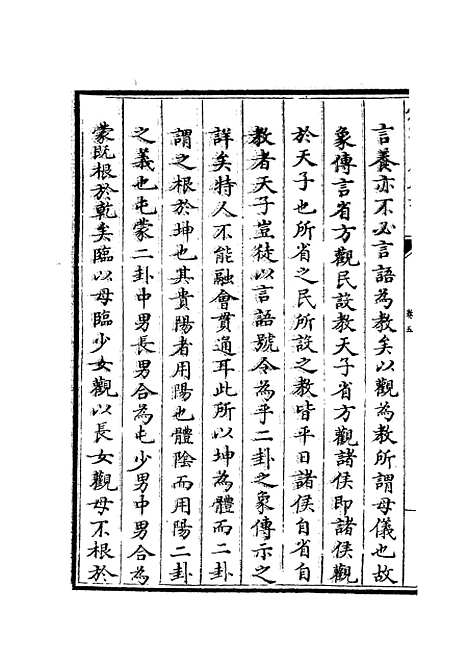 言養亦不必言語為教矣以觀為教所謂母儀也故
象傳言省方觀民設教天子省方觀諸侯即諸侯觀
於天子也所省之民所設之教皆平日諸侯自省自
教者天子豈徒以言語號令為乎二卦之象傳示之
詳矣特人不能融會貫通耳此所以坤為體而二卦
謂之根於坤也其貴陽者用陽也體陰而用陽二卦
之義也屯蒙二卦中男長男合為屯少男中男合為
蒙既根於乾矣臨以母臨少女觀以長女觀母不根於
卷五